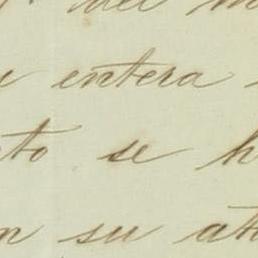 del
entera
to se h
n su at